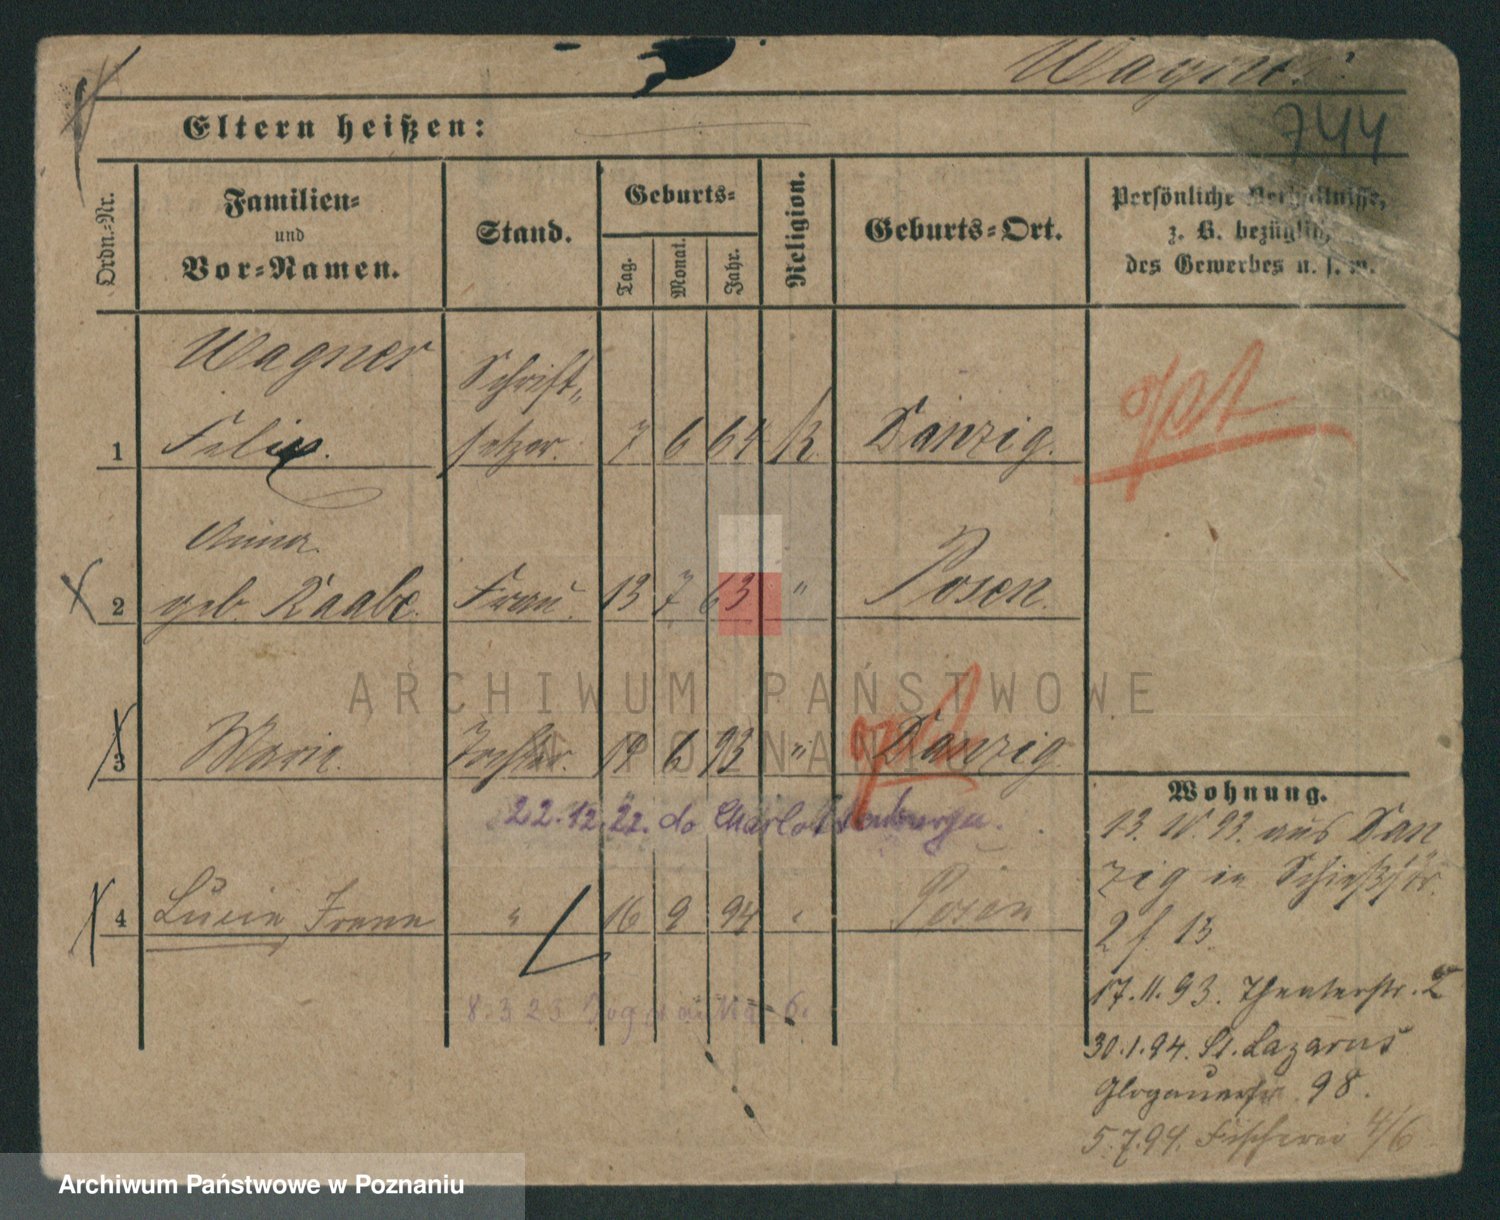 Wagner
744
Eltern heißen:
Ordn.-Nr.
Familien-
und
Vor-Namen.
Stand.
Geburts-
Tag.
Monat.
Jahr.
Religion.
Geburts-Ort.
Persönliche Verhältnisse,
z. B. bezüglich
des Gewerbes u. s. w.
Wagner
Schrift-
1 Felix. setzer. 7 6 64 K Danzig.
gest
Anna
2 geb. Raabe. Frau. 13 7 63 " Posen.
ARCHIWUM PAŃSTWOWE
W POZNANIU
3 Marie. Tochter. 19 6 93 " Danzig
22.12.22. do Charlottenburga.
4 Lucie Irene " 16 9 94 " Posen
8.3.23
Wohnung.
13. 10. 93. aus Dan
zig in Schießstr.
2 f. 13.
17.11.93. Theaterstr. 2
30.1.94. St. Lazarus
Glogauerstr. 98.
5.7.94. Fischerei 4/6
Archiwum Państwowe w Poznaniu